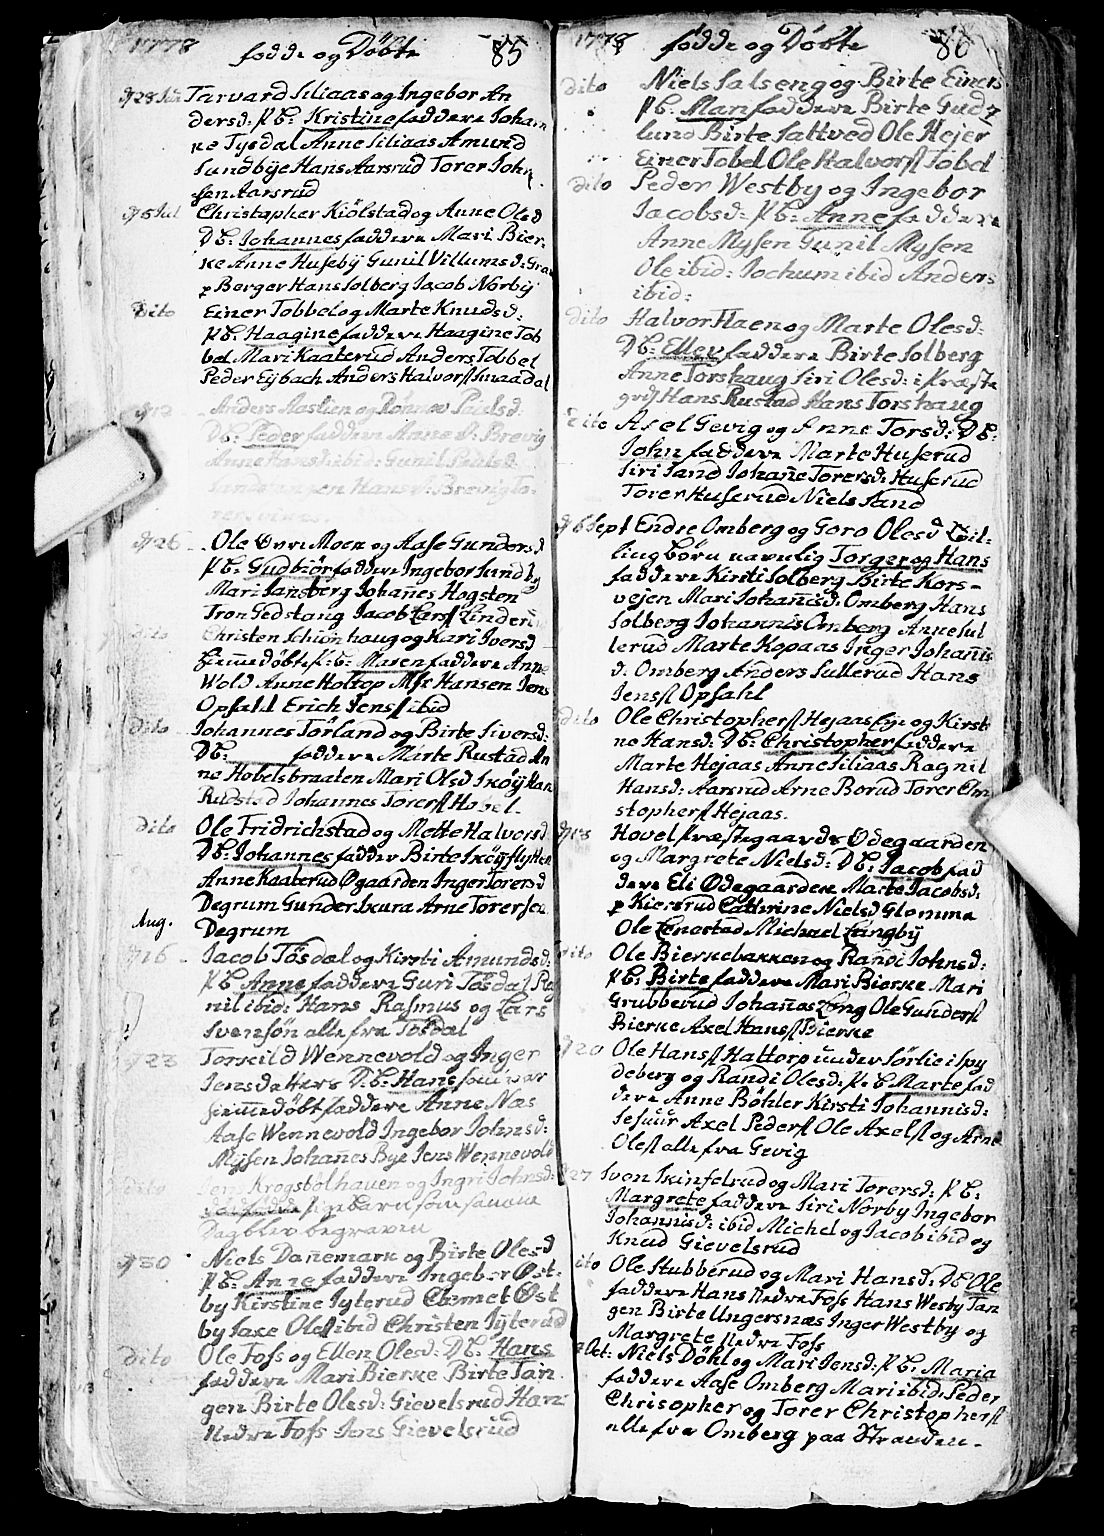 1778 födde og Döbte 85
d 28 Jun Tarvard Siliaas og Ingebor An
dersd: P.B: Kristine faddere Johan
ne Tysdal Anne Siliaas Amund
Sundbÿe Hans Aarsrud Torer Joh
sen Aarsrud
d 5 Jul Christopher Kiölstad og Anne Olesd
D.B: Johannes faddere Mari Bier
ke Anne Husebÿ Gunil Villumsd:
p Borger Hans Solberg Jacob Norbÿ
Dito Einer Tobbel og Marte Knudsd:
P.B: Haagine faddere Haagine Tob
bel Mari Kaaterud Anders Tobbel
Peder Eÿbach Anders Halvorss Smaadal
d 12 Anders Aastien og Rönnev Paulsd:
D.B: Peder faddere Anne N: Brevig
Anne Hansd: ibid: Gunil Paulsd
Sandstangen Hans N: Brevig To
d 26 Ole Moen og Aase Gundersd
P.B: Gudbiör faddere Ingebor Sundby
Mari Sansberg Johañes Hogsten
Tron Gedstang Jacob Larss Linderu
dito Christen Schönhaug og Kari Iversd
hiemedöbt P.B: Maren faddere Anne
Wold Anne Holtop Mss Hansen Jens
Opsahl Erich Jenss ibid
dito Johannes Törland og Birte Siversd:
D.B: faddere Marte Rustad An
ne Hobelsbraaten Mari Olsd Sköÿ Han
Rustad Johannes Torerss Hobel.
dito Ole Fridrichstad og Mette Halvorsd:
D.B: Johannes fadder Birte Sköÿflytten
Anne Kaaterud Ögaarden Inger Torersd
Degrum Gunder Skura Arne Torersen
Aug. Degrum
d 16 Jacob Tösdal og Kirsti Amundsd:
P.B: Anne faddere Guri Tösdal Ra
nil ibid: Hans Rasmus og Lars
Svensön alle fra Tösdal
d 23 Torkild Wennevold og Inger
Jensdatters D.B: Hans som var
hiemedöbt faddere Anne Nas
Aase Wennevold Ingebor Johnsd:
Mÿsen Johanes Bye Jens Wennevold
dito Jens Krogstolhauen og Ingri Johnsd:
pigebarn som samme
Dag blev begraven
d 30 Niels Danemark og Birte Olesd
P.B: Anne faddere Ingebor Öst
by Kirstine Sÿterud Clemet Öst
by Saxe Oless ibid Christen Sÿterud
dito Ole Foss og Ellen Olesd: D.B: Hans
faddere Mari Bierke Birte Tan
gen Birte Olesd: Gievelsrud Hans
Nedre Foss Jens Gievelsrud
1778 födde og Döbte 86
dito Niels Salseng og Birte Einers
P.B. Mari faddere Birte Gud
lund Birte Sattved Ole Hejer
Einer Tobel Ole Halvorss Tobel
dito Peder Westby og Ingebor
Jacobsd: P.B: Anne faddere
Anne Mysen Gunil Mysen
Ole ibid: Jochum ibid Anders
ibid:
dito Halvor Haen og Marte Olesd:
D.B: Ellev faddere Birte Solberg
Anne Torshaug Siri Olesd: i Præste
grd Hans Rustad Hans Torshaug
dito Axel Gevig og Anne Torsd: D.B:
John faddere Marte Huserud
Siri Sand Johañe Torersd: Huserud
Torer Huserud Niels Sand
d 6 Sept Endre Omberg og Goro Olesd Tvil
lingbörn navnlig Torger og Hans
faddere Kirsti Solberg Birte Kors-
vejen Mari Johañisd: Omberg Hans
Solberg Johannis Omberg Anne Sul
lerud Marte Kopaas Inger Johañis
d: Omberg Anders Sullerud Hans
Jenss Opsahl
dito Ole Christopherss Hejaas eye og Kirsti
ne Hansd: D.B: Christopher faddere
Marte Hejaas Anne Siliaas Ragnil
Hansd: Aarsrud Arne Borud Torer Chri
stopherss Hejaas.
d 13 Hovel Præstegaards Ödegaarden
og Margrete Nielsd: D.B: Jacob fad
dere Eli Ödegaarden Marte Jacobsd:
p Kiersrud Cathrine Nielsd Glomma
Ole Lenastad Michael Langbÿ
dito Ole Bierkebakken og Randi Johnsd:
P.B: Birte faddere Mari Bierke Mari
Grubberud Johañas Long Ole Gunderss
Bierke Axel Hanss Bierke
d 20 Ole Hanss Haltorp under Sörlie i Spy
deberg og Randi Olesd: P.B Marte fad
dere Anne Böhler Kirsti Johannisd:
Sesuur Axel Pederss Ole Axelss og Arne
Oless alle fra Gevig
d 27 Sven Skinfelrud og Mari Torersd: P.B:
Margrete faddere Siri Norby Ingebor
Johannisd: ibid Michel og Jacob ibid og
Knud Gievelsrud
dito Ole Stubberud og Mari Hansd: D.B: Ole
faddere Hans Nedre Foss Hans Wesby Tan
gen Birte Ungersnæs Inger Westby og
Margrete Nedre Foss
Oct: Niels Döhl og Mari Jensd: P.B: Maria
faddere Aase Omberg Mari ibid: Peder
Chrisopher og Torer Christopherss
alle fra Omberg paa Stranden.